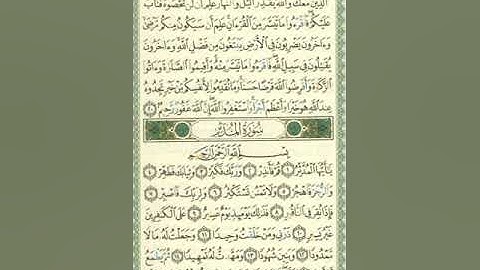 الَّذِينَ مَعَكَ وَاللَّهُ يُقَدِّرُ الَّيْلَ وَالنَّهَارَ عَلِمَ أَن لَّن تُحْصُوهُ فَتَابَ
عَلَيْكُمْ فَاقْرَءُوا مَا تَيَسَّرَ مِنَ الْقُرْءَانِ عَلِمَ أَن سَيَكُونُ مِنكُم مَّرْضَىٰ
وَءَاخَرُونَ يَضْرِبُونَ فِي الْأَرْضِ يَبْتَغُونَ مِن فَضْلِ اللَّهِ وَءَاخَرُونَ
يُقَاتِلُونَ فِي سَبِيلِ اللَّهِ فَاقْرَءُوا مَا تَيَسَّرَ مِنْهُ وَأَقِيمُوا الصَّلَوٰةَ وَءَاتُوا
الزَّكَوٰةَ وَأَقْرِضُوا اللَّهَ قَرْضًا حَسَنًا وَمَا تُقَدِّمُوا لِأَنفُسِكُم مِّنْ خَيْرٍ تَجِدُوهُ
عِندَ اللَّهِ هُوَ خَيْرًا وَأَعْظَمَ أَجْرًا وَاسْتَغْفِرُوا اللَّهَ إِنَّ اللَّهَ غَفُورٌ رَّحِيمٌ ٢٠
سُورَةُ الْمُدَّثِّرِ
بِسْمِ اللَّهِ الرَّحْمَٰنِ الرَّحِيمِ
يَٰأَيُّهَا الْمُدَّثِّرُ ١ قُمْ فَأَنذِرْ ٢ وَرَبَّكَ فَكَبِّرْ ٣ وَثِيَابَكَ فَطَهِّرْ ٤
وَالرُّجْزَ فَاهْجُرْ ٥ وَلَا تَمْنُن تَسْتَكْثِرُ ٦ وَلِرَبِّكَ فَاصْبِرْ ٧
فَإِذَا نُقِرَ فِي النَّاقُورِ ٨ فَذَٰلِكَ يَوْمَئِذٍ يَوْمٌ عَسِيرٌ ٩ عَلَى الْكَٰفِرِينَ
غَيْرُ يَسِيرٍ ١٠ ذَرْنِي وَمَنْ خَلَقْتُ وَحِيدًا ١١ وَجَعَلْتُ لَهُ مَالًا
مَّمْدُودًا ١٢ وَبَنِينَ شُهُودًا ١٣ وَمَهَّدتُّ لَهُ تَمْهِيدًا ١٤ ثُمَّ يَطْمَعُ